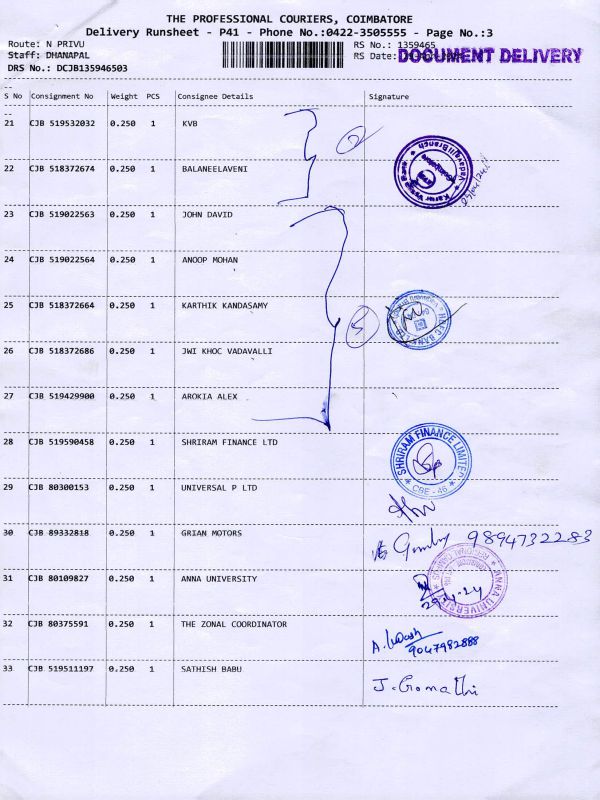 THE PROFESSIONAL COURIERS, COIMBATORE
Delivery Runsheet - P41 - Phone No.:0422-3505555 - Page No.:3
Route: N PRIVU
RS No.: 1359465
Staff: DHANAPAL
RS Date:
DOCUMENT DELIVERY
DRS No.: DCJB135946503
S No Consignment No Weight PCS Consignee Details Signature
21 CJB 519532032 0.250 1 KVB
22 CJB 518372674 0.250 1 BALANEELAVENI
23 CJB 519022563 0.250 1 JOHN DAVID
24 CJB 519022564 0.250 1 ANOOP MOHAN
25 CJB 518372664 0.250 1 KARTHIK KANDASAMY
26 CJB 518372686 0.250 1 JWI KHOC VADAVALLI
27 CJB 519429900 0.250 1 AROKIA ALEX
28 CJB 519590458 0.250 1 SHRIRAM FINANCE LTD
SHRIRAM FINANCE LIMITED
CBE - 46
29 CJB 80300153 0.250 1 UNIVERSAL P LTD
30 CJB 89332818 0.250 1 GRIAN MOTORS
9894732283
31 CJB 80109827 0.250 1 ANNA UNIVERSITY
ANNA UNIVERSITY
REGIONAL CAMPUS
32 CJB 80375591 0.250 1 THE ZONAL COORDINATOR
9047982888
33 CJB 519511197 0.250 1 SATHISH BABU
J. Gomathi